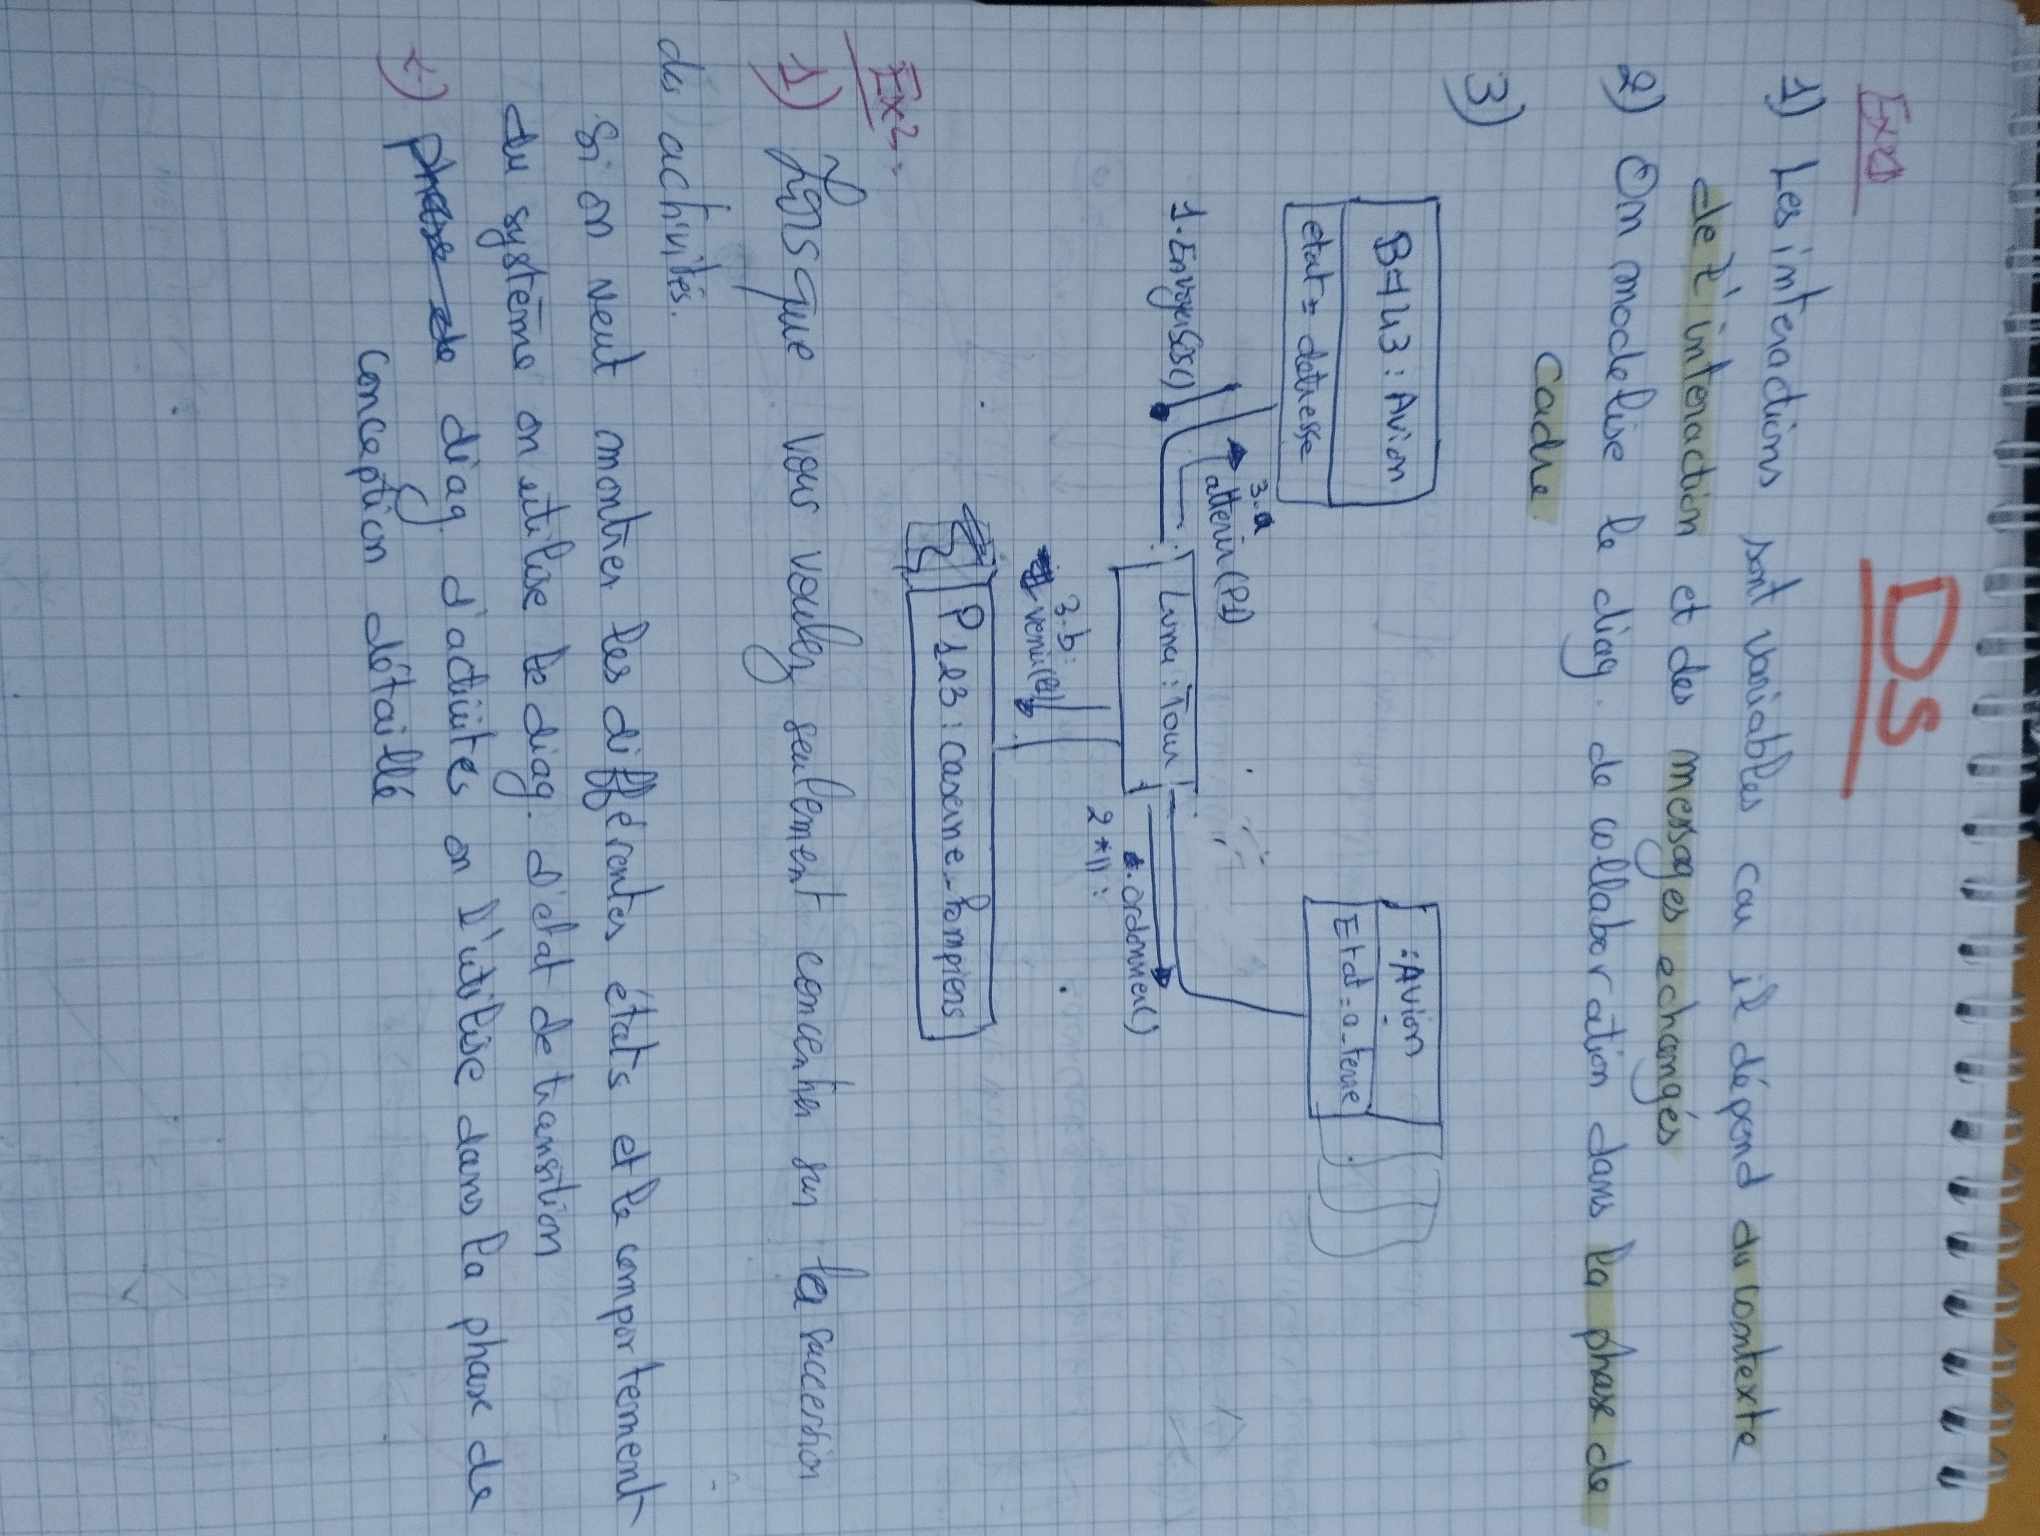 DS
Ex1
1) Les interactions sont variables car il dépend du contexte
de l'interaction et des messages echangés
2) On modelise le diag. de collaboration dans la phase de
cadre.
3)
B743 : Avion
etat = detresse
:Avion
Etat = a_terre
3.a
atterir (P1)
1. EnvoyerSOS()
Luna : Tour
. ordonner()
2 *|| :
3.b :
venir()
P123 : caserne_Pompiers
Ex2
1) Lorsque vous voulez seulement concentrer sur la succession
des activités.
Si on veut montrer les différentes états et le comportement
du système on utilise le diag. d'état de transition
2) phase de diag. d'activités on l'utilise dans la phase de
conception détaillé